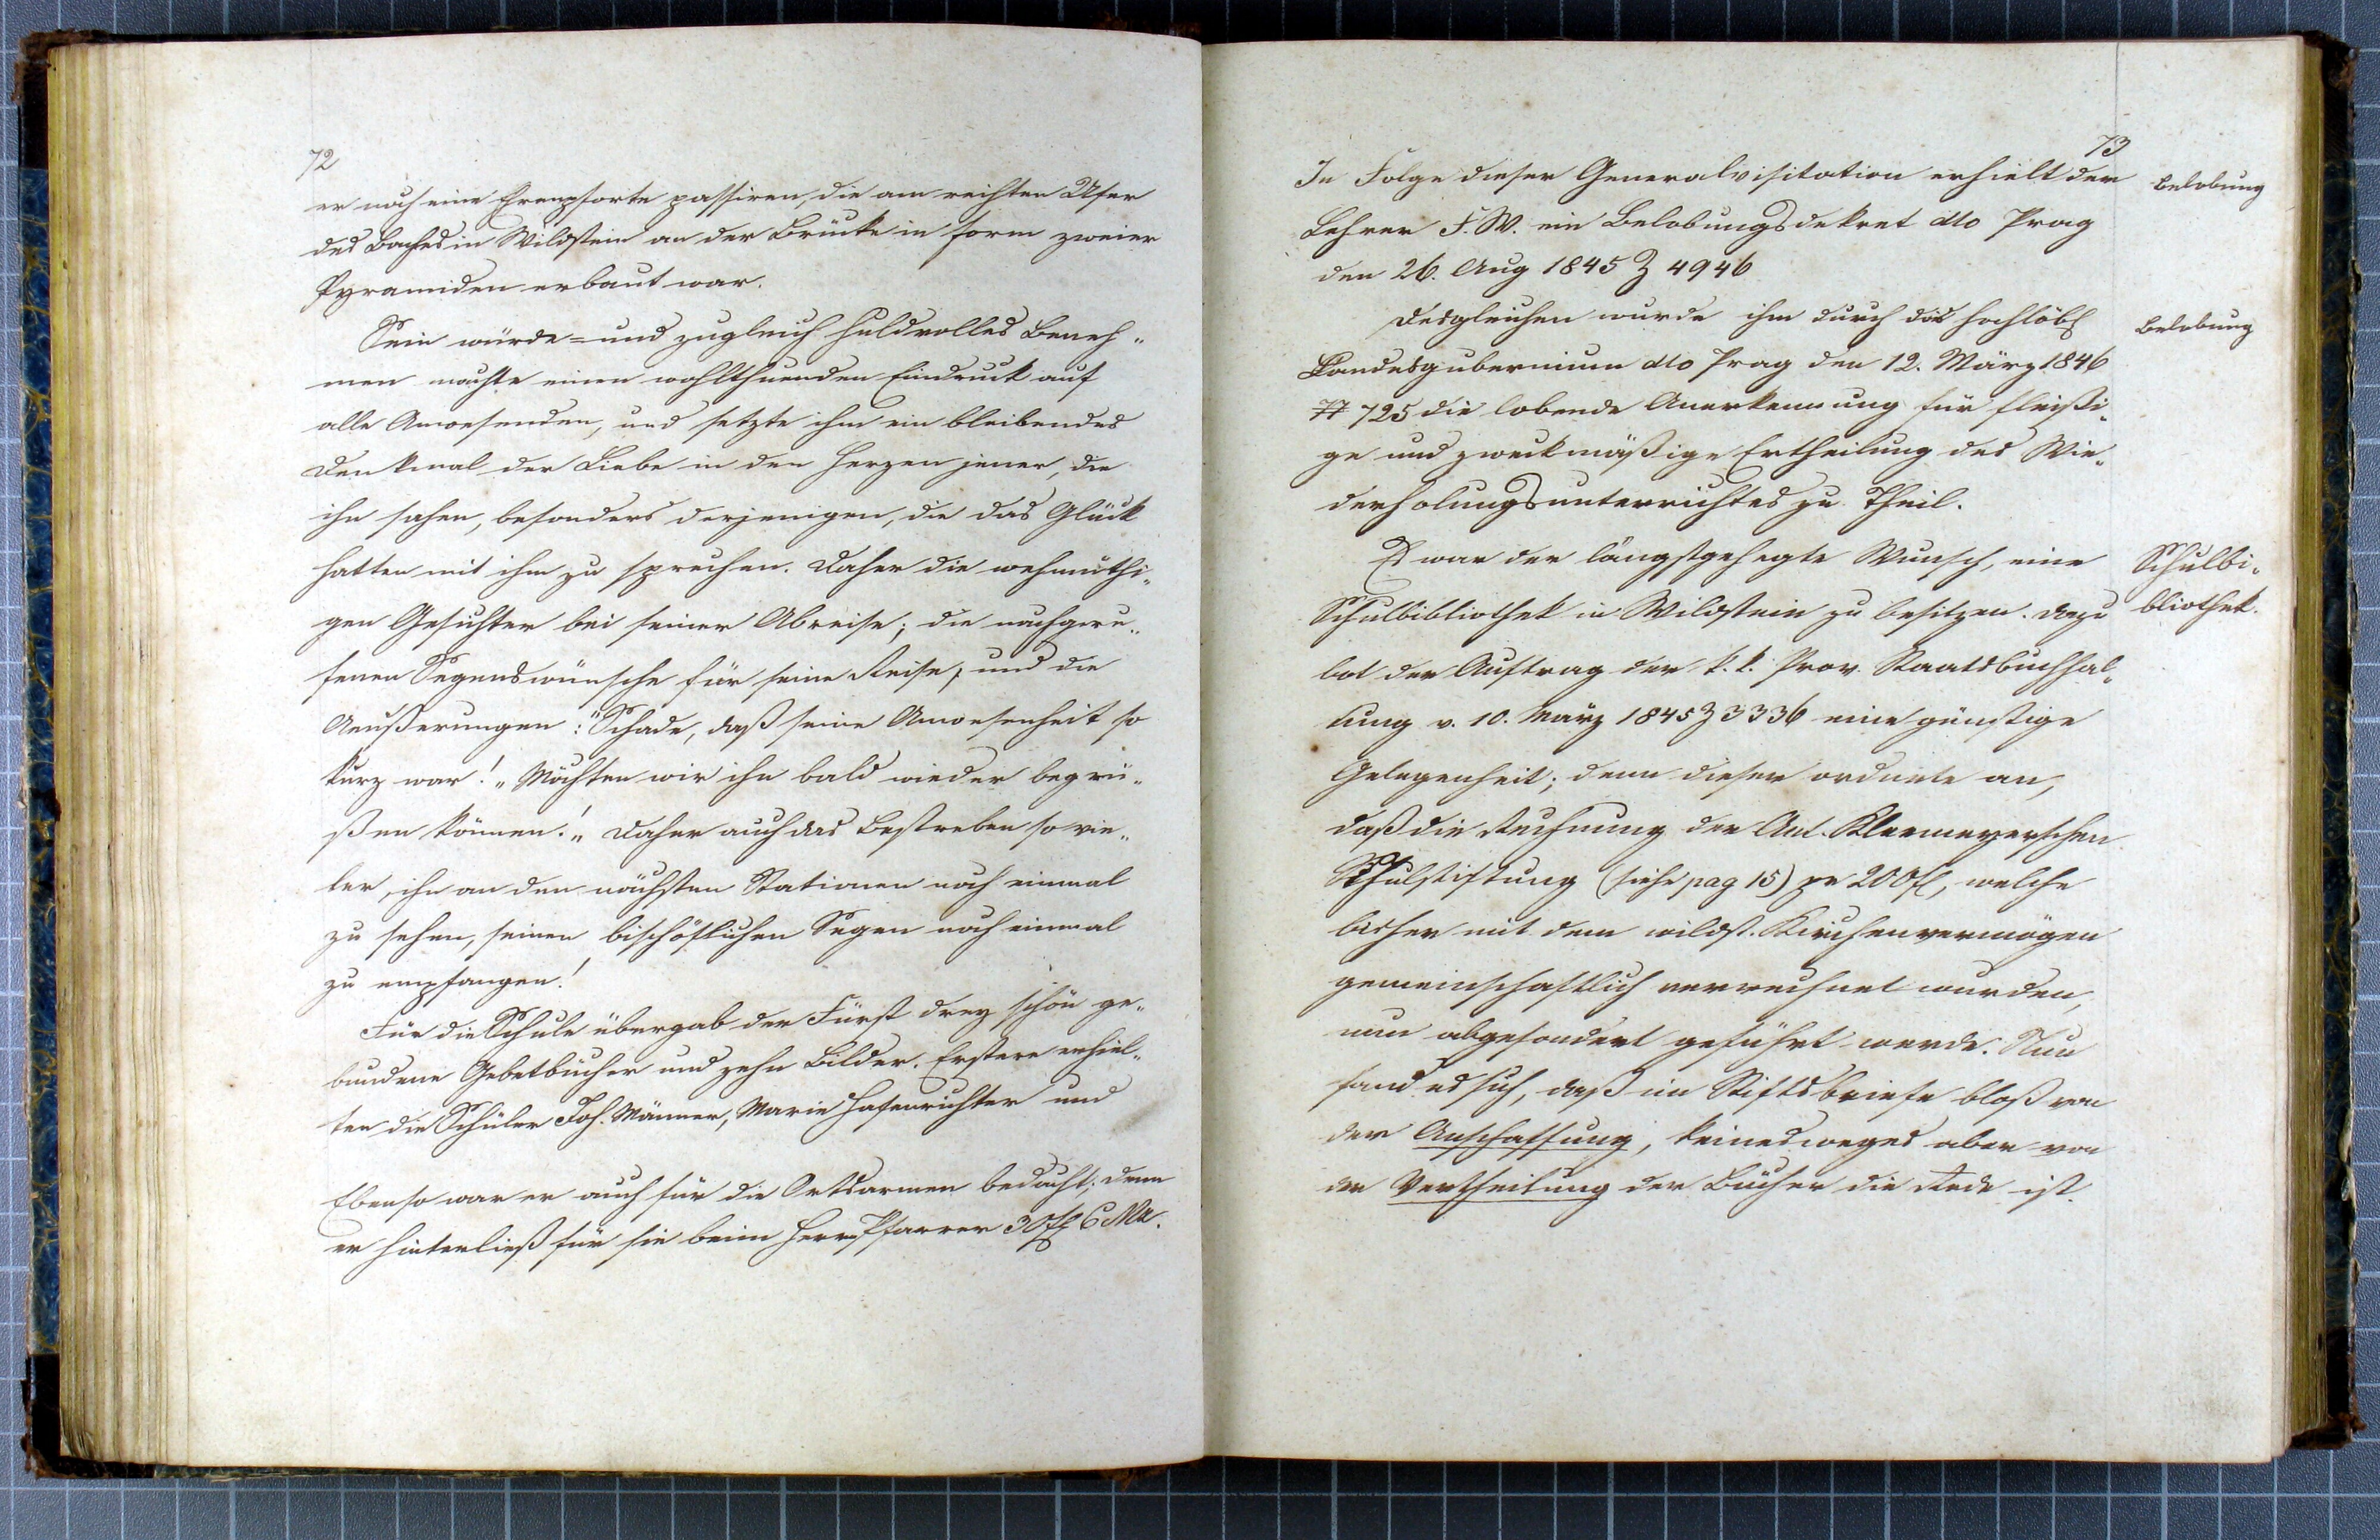 72
er noch eine Ehrenpforte passiren, die am rechten Ufer
des Baches in Wildstein an der Brücke in Form zweier
Pyramiden erbaut war.
Sein würde- und zugleich huldvolles Beneh-
men machte einen wohlthuenden Eindruck auf
alle Anwesenden, und setzte ihm ein bleibendes
Denkmal der Liebe in den Herzen jener, die
ihn sahen, besonders derjenigen, die das Glück
hatten mit ihm zu sprechen. Daher die wehmüthi-
gen Gesichter bei seiner Abreise; die nachgeru-
fenen Segenswünsche für seine Reise, und die
Aeußerungen: "Schade, daß seine Anwesenheit so
kurz war!" Möchten wir ihn bald wieder begrü-
ßen können!" Daher auch das Bestreben so vie-
ler, ihn an den nächsten Stationen noch einmal
zu sehen, seinen bischöflichen Segen noch einmal
zu empfangen!
Für die Schule übergab der Fürst drey schön ge-
bundene Gebetbücher und zehn Bilder. Erstere erhiel-
ten die Schüler Joh. Männer, Marie Hafenrichter und
Ebenso war er auch für die Ortsarmen bedacht; denn
er hinterließ für sie beim Herrn Pfarrer 30 fl CMz.
73
In Folge dieser Generalvisitation erhielt der
Lehrer F. W. ein Belobungsdekret dto Prag
den 26. Aug 1845 Z 4946
Belobung
Desgleichen wurde ihm durch das hochlöbl
Landesgubernium dto Prag den 12. März 1846
# 725 die lobende Anerkennung für fleißi-
ge und zweckmäßige Ertheilung des Wie-
derholungsunterrichtes zu Theil.
Belobung
Es war der längstgehegte Wunsch, eine
Schulbibliothek in Wildstein zu besitzen. Dazu
bot der Auftrag der k. k. Prov. Staatsbuchhal-
tung v. 10. März 1845 Z 3336 eine günstige
Gelegenheit; denn dieser ordnete an,
daß die Rechnung der Ant. Kleemeyerschen
Schulstiftung (siehe pag 15) pr 200 fl, welche
bisher mit dem wildst. Kirchenvermögen
gemeinschaftlich verrechnet wurden,
nun abgesondert geführt werde. Nun
fand es sich, daß im Stiftsbriefe bloß von
der Anschaffung, keineswegs aber von
der Vertheilung der Bücher die Rede ist.
Schulbi-
bliothek.